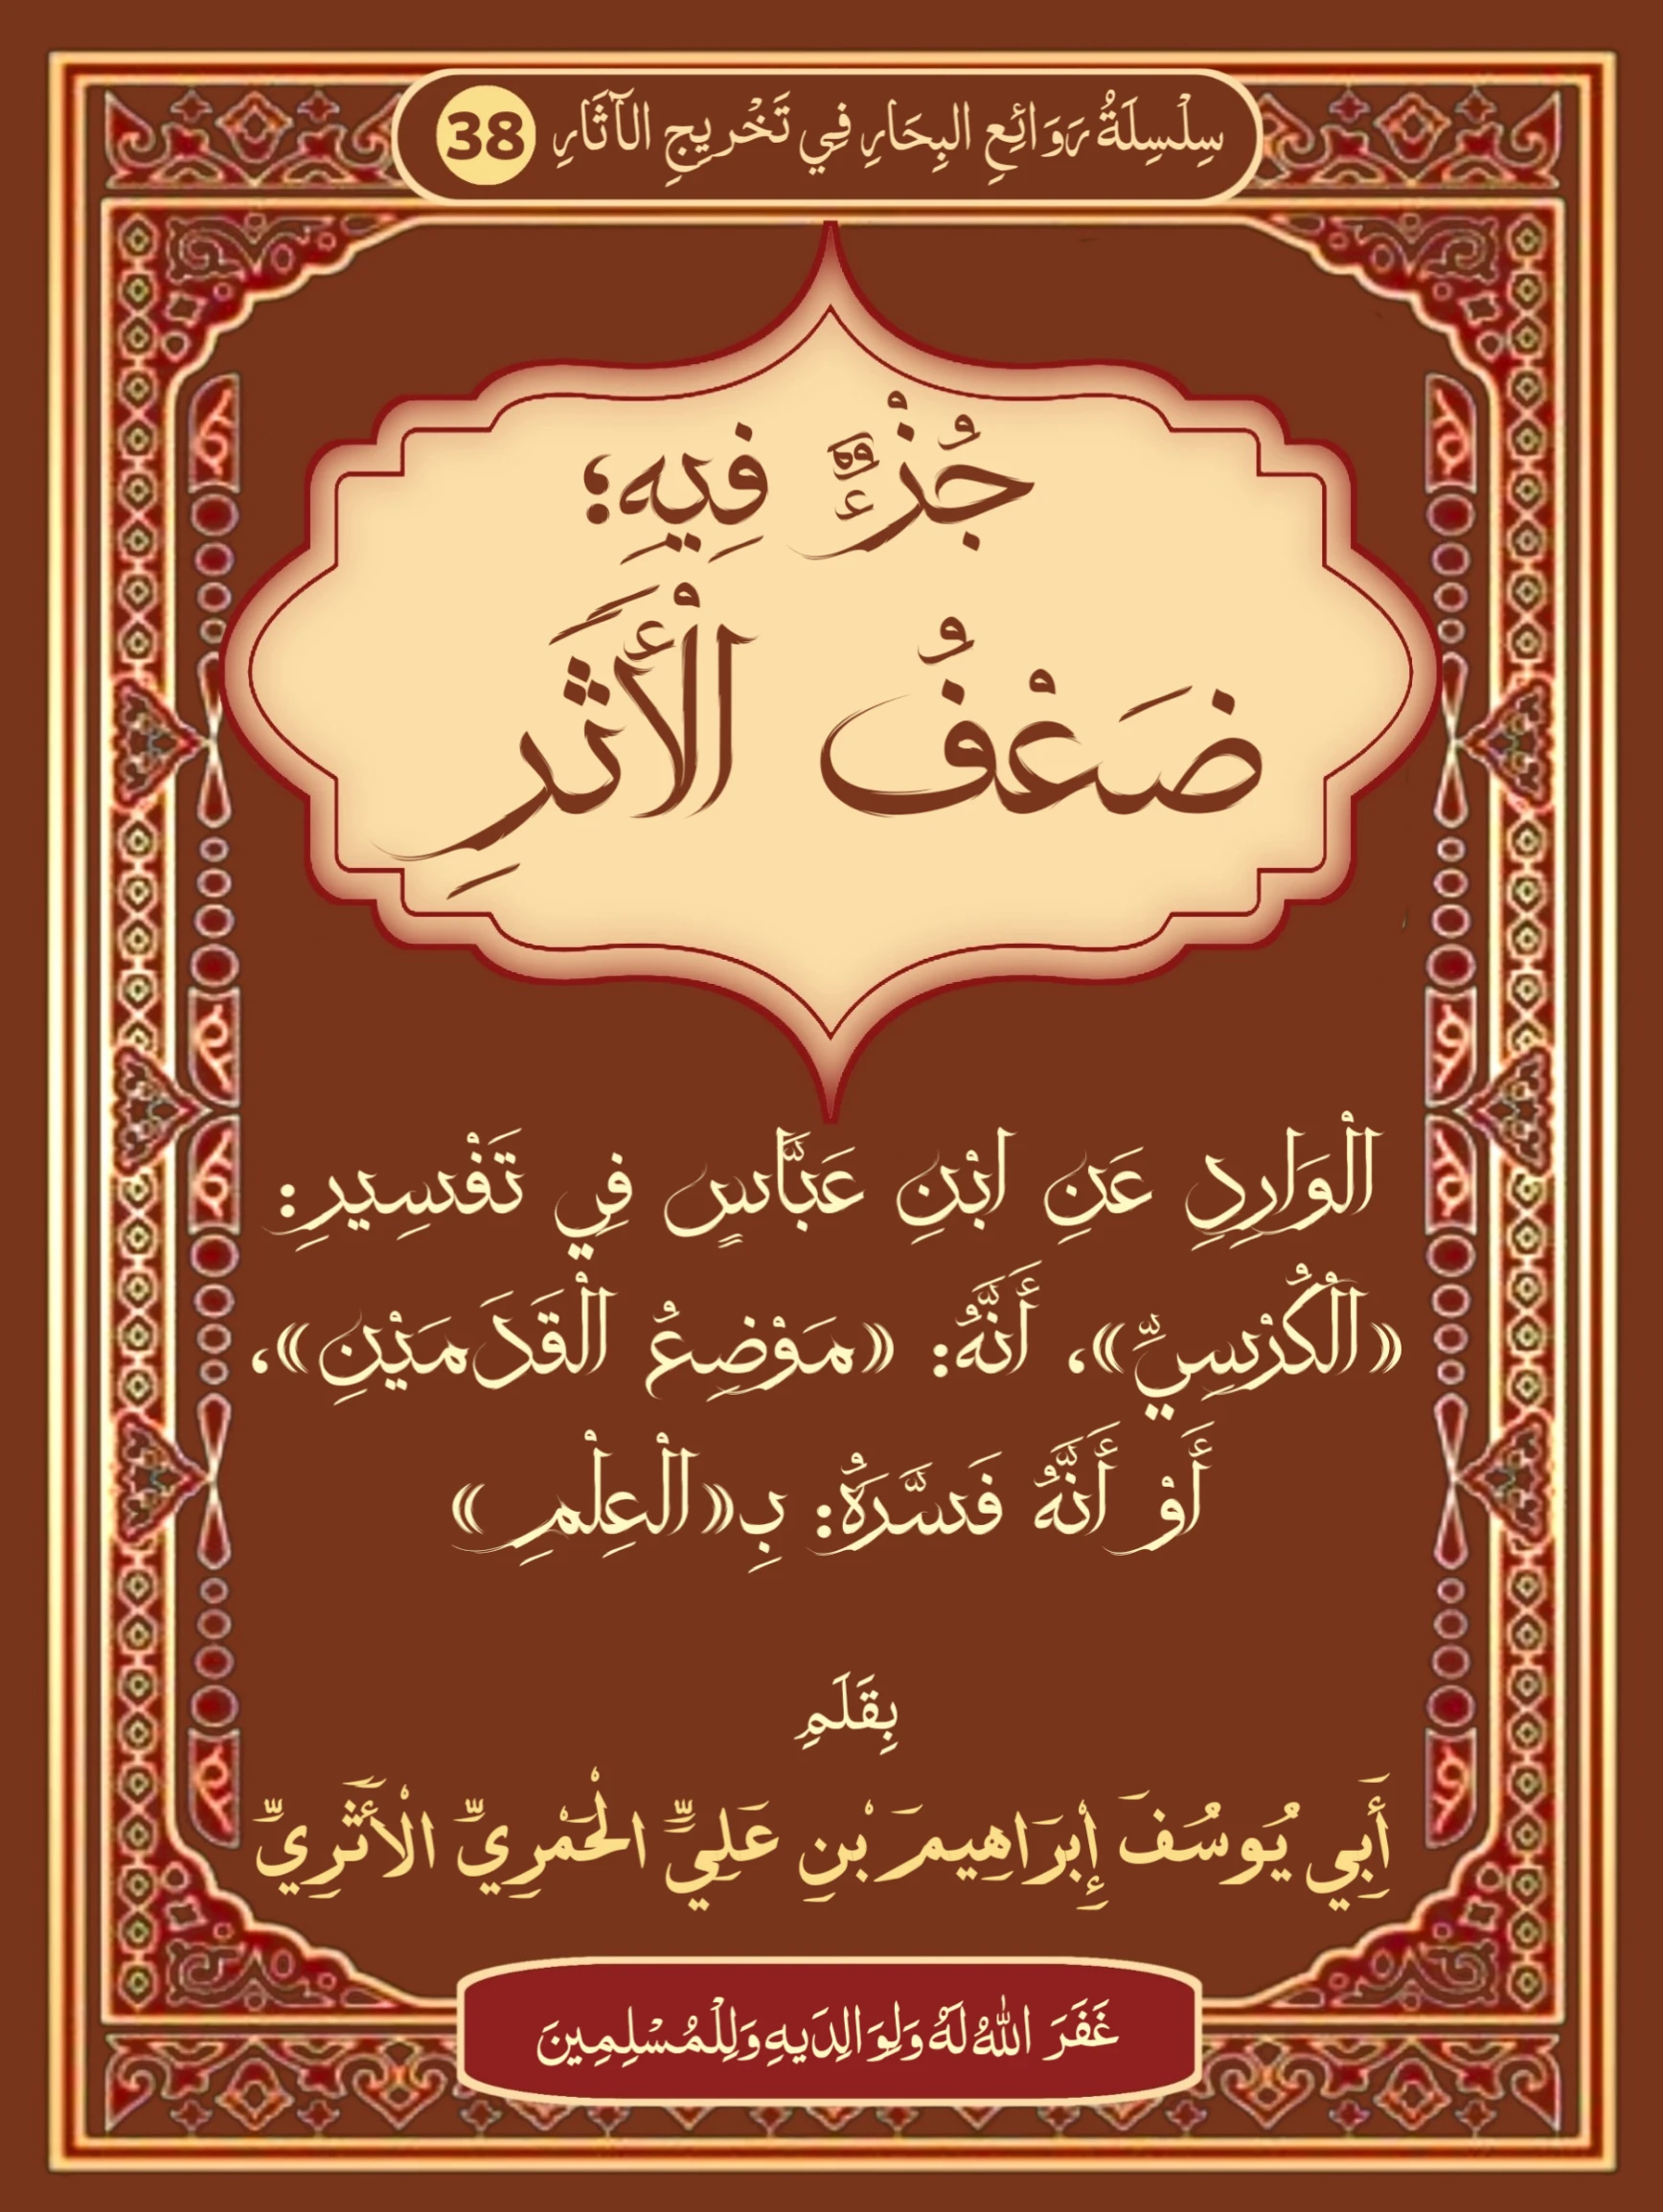 سِلْسِلَةُ رَوَائِعِ البِحَارِ فِي تَخْرِيجِ الآثَارِ 38
جُزْءٌ فِيهِ؛
ضَعْفُ الْأَثَرِ
الْوَارِدِ عَنِ ابْنِ عَبَّاسٍ فِي تَفْسِيرِ:
«الْكُرْسِيِّ»، أَنَّهُ: «مَوْضِعُ الْقَدَمَيْنِ»،
أَوْ أَنَّهُ فَسَّرَهُ: بِـ«الْعِلْمِ»
بِقَلَمِ
أَبِي يُوسُفَ إِبْرَاهِيمَ بْنِ عَلِيٍّ الْحَمْرِيِّ الْأَثَرِيِّ
غَفَرَ اللهُ لَهُ وَلِوَالِدَيهِ وَلِلْمُسْلِمِينَ